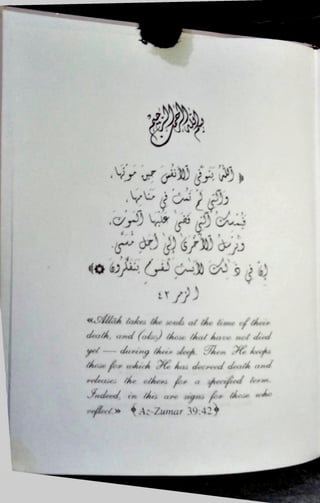 بسم الله الرحمن الرحيم
﴿ ٱللَّهُ يَتَوَفَّى ٱلْأَنفُسَ حِينَ مَوْتِهَا،
وَٱلَّتِي لَمْ تَمُتْ فِي مَنَامِهَا،
فَيُمْسِكُ ٱلَّتِي قَضَىٰ عَلَيْهَا ٱلْمَوْتَ،
وَيُرْسِلُ ٱلْأُخْرَىٰ إِلَىٰ أَجَلٍ مُّسَمًّى.
إِنَّ فِي ذَٰلِكَ لَآيَٰتٍ لِّقَوْمٍ يَتَفَكَّرُونَ ﴾
الزمر ٤٢
«Allâh takes the souls at the time of their
death, and (also) those that have not died
yet — during their sleep. Then He keeps
those for which He has decreed death and
releases the others for a specified term.
Indeed, in this are signs for those who
reflect.» ﴾Az-Zumar 39:42﴿